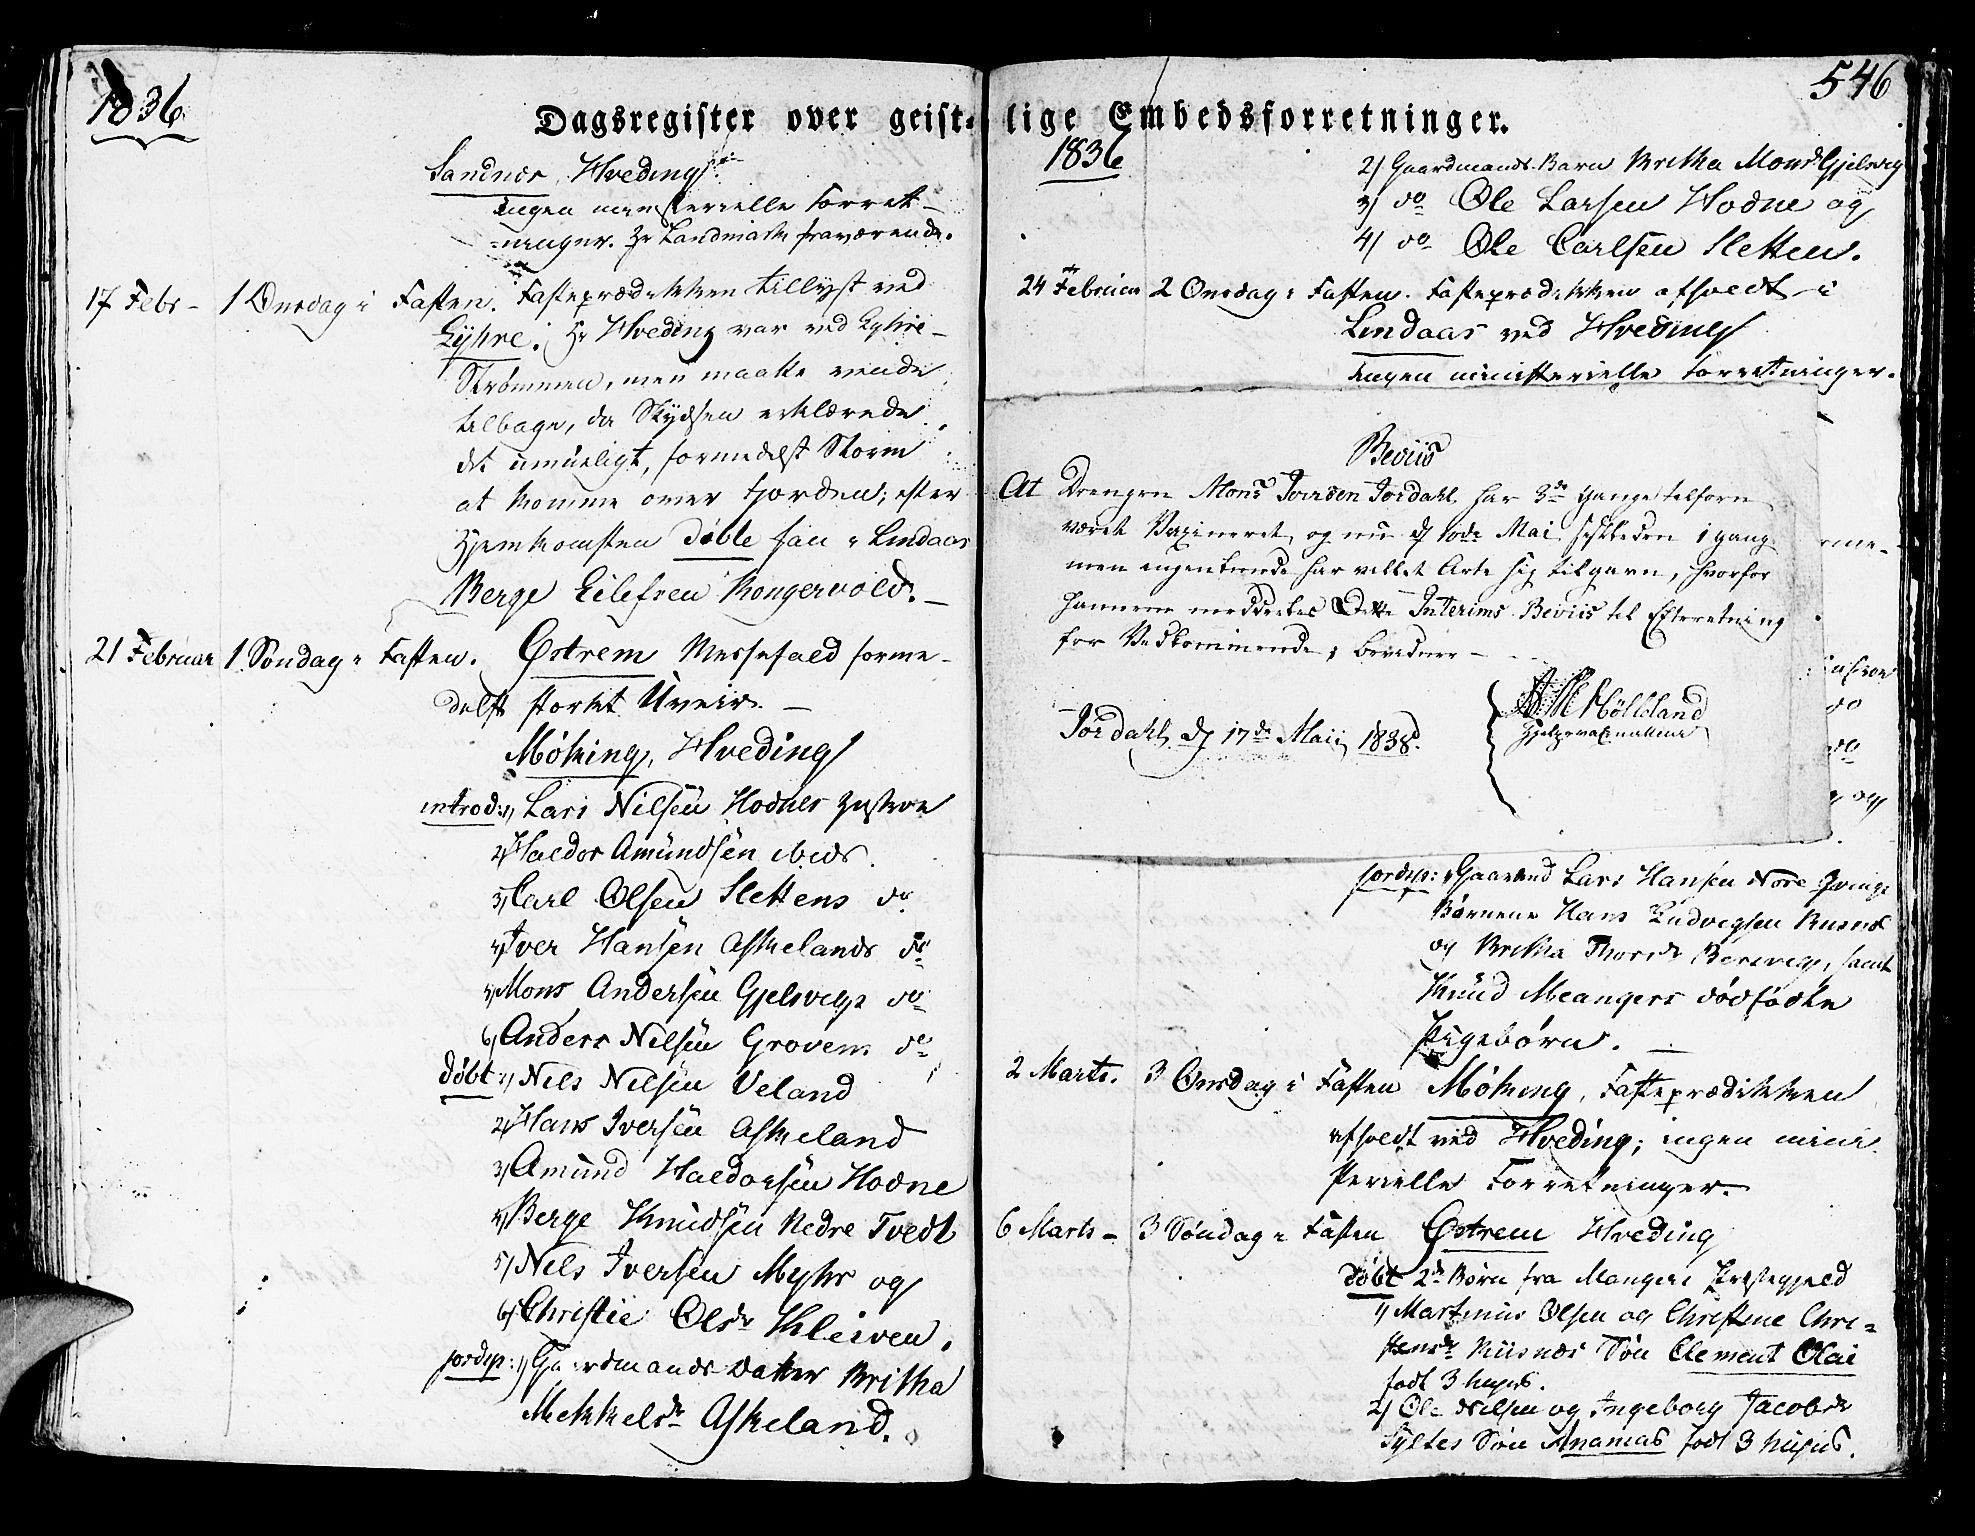 1836
Dagsregister over geist-
Sandnæs, Hveding
Ingen ministerielle Forret-
-ninger. Hr Landmark fraværende.
17 Febr - 1 Onsdag i Fasten. Fasteprædikken tillyst ved
Eyhre. Hr Hveding var ved Eyhre-
Strømmen, men maatte vende
tilbage, da Skydsen erklærede
det umueligt, formedelst Storm
at komme over Fjorden; efter
Hjemkomsten døbte han i Lindaas
Berge Eilefsen Kongervold. -
21 Februar 1 Søndag i Fasten. Østrem Messefald forme-
delst stærkt Uveir. -
Møking, Hveding
introd: 1) Lars Nilsen Hodnes Hustroe
2) Haldor Amundsen ibids.
3) Carl Olsen Slettens do
4) Iver Hansen Askelands do
5) Mons Andersen Gjelsvigs do
6) Anders Nilsen Grovens do
døbt 1) Nils Nilsen Veland
2) Hans Iversen Askeland
3) Amund Haldorsen Hodne
4) Berge Knudsen Nedre Tvedt
5) Nils Iversen Myhr og
6) Christie Olsdr Kleiven.
jordsp: 1) Gaardmands Datter Britha
Mikkelsdr Askeland.
546
lige Embedsforretninger.
1836
2) Gaardmands Barn Britha Monsdr Gjelsvig
3) do Ole Larsen Hodne og
4) do Ole Carlsen Sletten.
24 Februar 2 Onsdag i Fasten. Fasteprædikken afholdt i
Lindaas ved Hveding
Ingen ministerielle Forretninger.
Beviis
At Drengen Mons Iversen Jordahl har 3de Gange tilforn
været Vaxineret, og nu d 10de Mai sistleden 1 gang
men ingenlunde har villet Arte sig tilgavn, hvorfor
hannem meddeeles Dette Interims Beviis til Efterretning
for Vedkommende, bevidner -
Jordahl d 17de Maii 1838.
Mølleland
Hjelpevaxinateur
jordsp: Gaardmd Lars Hansen Nore Qvinge
Børnene Hans Ludvigsen Risnæs
og Britha Thorsdr Berevig, samt
Knud Meangers dødfødte
Pigebørn. -
2 Marts. 3 Onsdag i Fasten Møking, Fasteprædikken
afholdt ved Hveding; ingen mini
sterielle Forretninger. -
6 Marts - 3 Søndag i Fasten Østrem Hveding
døbt 2de Børn fra Mangers Præstegjeld
1) Martinus Olsen og Christine Chri=
stensdr Riisnæs Søn Clement Olai
født 3 hujus.
2) Ole Nilsen og Ingeborg Jacobsdr
Syltes Søn Ananias født 3 hujus.